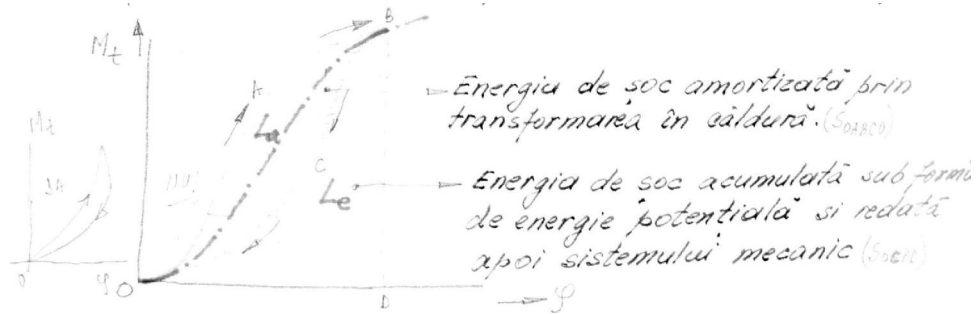 B
M_t
Energia de soc amortizată prin
transformarea în căldură. (S_OABCO)
A
La
M_t
C
ΔA
Le
Energia de soc acumulată sub formă
de energie potentială si redată
apoi sistemului mecanic
O
φ
O
D
φ